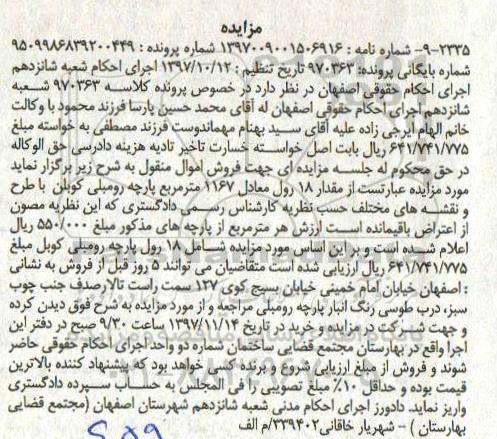 مزایده
۹-۲۳۳۵- شماره نامه : ۱۳۹۷۰۰۹۰۰۱۵۰۶۹۱۶ شماره پرونده : ۹۵۰۹۹۸۶۸۳۹۲۰۰۴۴۹
شماره بایگانی پرونده: ۹۷۰۳۶۳ تاریخ تنظیم : ۱۳۹۷/۱۰/۱۲ اجرای احکام شعبه شانزدهم
اجرای احکام حقوقی اصفهان در نظر دارد در خصوص پرونده کلاسه ۹۷۰۳۶۳ شعبه
شانزدهم اجرای احکام حقوقی اصفهان له آقای محمد حسین پارسا فرزند محمود با وکالت
خانم الهام ایرجی زاده علیه آقای سید بهنام مهماندوست فرزند مصطفی به خواسته مبلغ
۶۴۱/۷۴۱/۷۷۵ ریال بابت اصل خواسته خسارت تاخیر تادیه هزینه دادرسی حق الوکاله
در حق محکوم له جلسه مزایده ای جهت فروش اموال منقول به شرح زیر برگزار نماید
مورد مزایده عبارتست از مقدار ۱۸ رول معادل ۱۱۶۷ مترمربع پارچه رومبلی کوبلن با طرح
و نقشه های مختلف حسب نظریه کارشناس رسمی دادگستری که این نظریه مصون
از اعتراض باقیمانده است ارزش هر مترمربع از پارچه های مذکور مبلغ ۵۵۰/۰۰۰ ریال
اعلام شده است و بر این اساس مورد مزایده شامل ۱۸ رول پارچه رومبلی کوبل مبلغ
۶۴۱/۷۴۱/۷۷۵ ریال ارزیابی شده است متقاضیان می توانند ۵ روز قبل از فروش به نشانی
: اصفهان خیابان امام خمینی خیابان بسیج کوی ۱۲۷ سمت راست تالار صدف جنب چوب
سبز، درب طوسی رنگ انبار پارچه رومبلی مراجعه و از مورد مزایده به شرح فوق دیدن کرده
و جهت شرکت در مزایده و خرید در تاریخ ۱۳۹۷/۱۱/۱۴ ساعت ۹/۳۰ صبح در دفتر این
اجرا واقع در بهارستان مجتمع قضایی ساختمان شماره دو واحد اجرای احکام حقوقی حاضر
شوند و فروش از مبلغ ارزیابی شروع و برنده کسی خواهد بود که پیشنهاد کننده بالاترین
قیمت بوده و حداقل ۱۰٪ مبلغ تصویبی را فی المجلس به حساب سپرده دادگستری
واریز نماید. دادورز اجرای احکام مدنی شعبه شانزدهم شهرستان اصفهان (مجتمع قضایی
بهارستان ) - شهریار خاقانی ۳۳۹۴۰۲/م الف